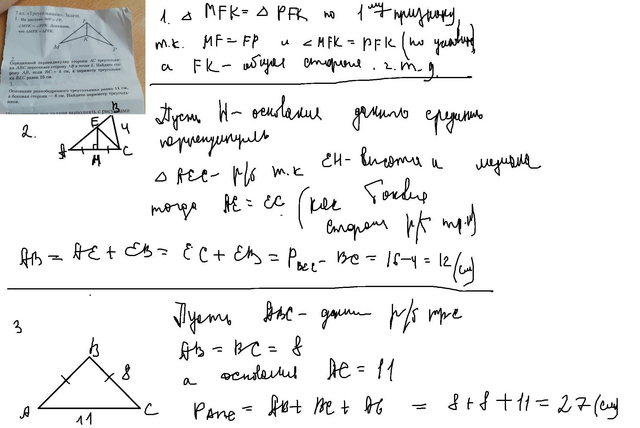 7 кл. «Треугольники». Задачи
1. На рисунке MF = FP,
∠MFK = ∠PFK. Докажите,
что △MFK = △PFK.
F
K
M
P
Серединный перпендикуляр стороны AC треуголь-
ника ABC пересекает сторону AB в точке E. Найдите сто-
рону AB, если BC = 4 см, а периметр треугольни-
ка BEC равен 16 см.
Основание равнобедренного треугольника равно 11 см,
а боковая сторона — 8 см. Найдите периметр треуголь-
ника.
1. △ MFK = △ PFK по 1му признаку
т.к. MF = FP и ∠MFK = PFK (по условию)
а FK – общая сторона. ч.т.д.
2.
B
E
4
A
H
C
Пусть H – основания данного
перпендикуляр
△ AEC – р/б т.к EH – высота и медиана
тогда AE = EC (как боковые
стороны р/б
AB = AE + EB = EC + EB = PBEC – BC = 16 – 4 = 12 (см)
3
B
8
A
C
11
Пусть ABC – р/б
AB = BC = 8
а основания AC = 11
= 8 + 8 + 11 = 27 (см)